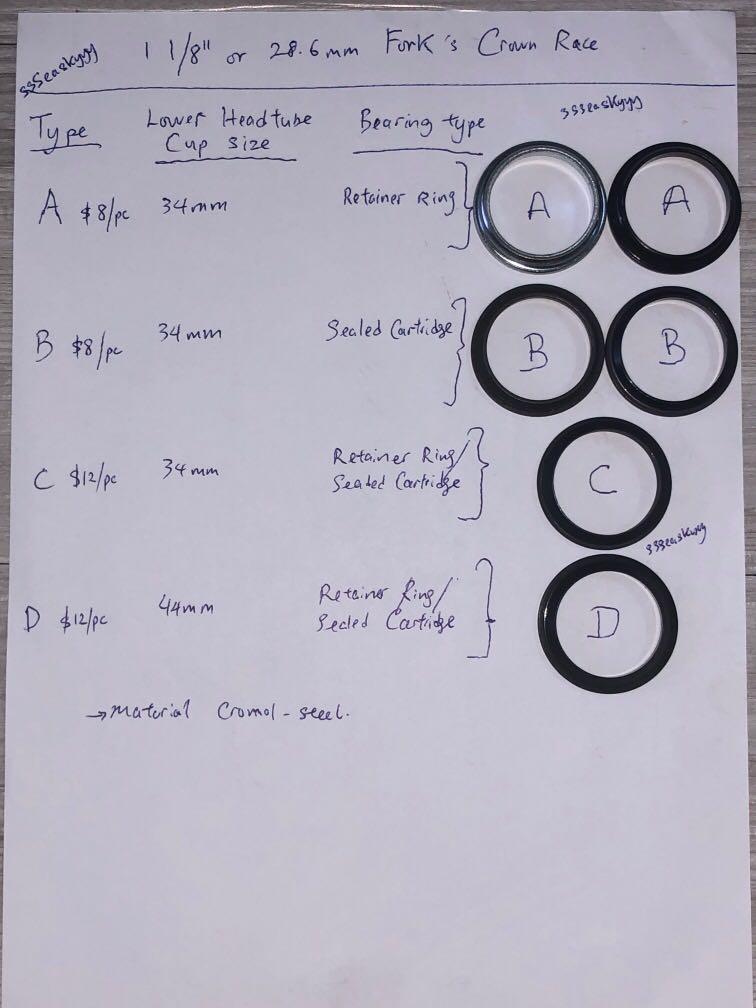 ssseaskyyy
1 1/8" or 28.6mm Fork's Crown Race
ssseaskyyy
Type Lower Headtube Cup size Bearing type
A $8/pc 34mm Retainer Ring A A
B $8/pc 34mm Sealed Cartridge B B
C $12/pc 34mm Retainer Ring/
Sealed Cartridge C
ssseaskyyy
D $12/pc 44mm Retainer Ring/
Sealed Cartridge D
→ Material Cromol - steel.